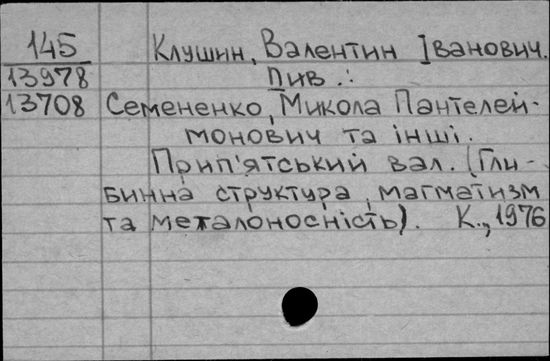 145 Клушин, Валентин Іванович.
13978 Див.:
13708 Семененко, Микола Пантелей-
монович та інші.
Прип'ятський вал. (Гли-
бинна структура, магматизм
та металоносність). К., 1976